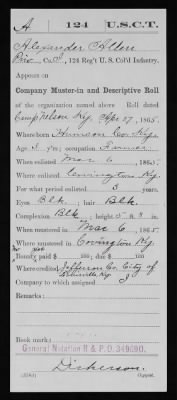 A | 124 | U.S.C.T.
Alexander Allen
Co. , 124 Reg't U. S. Col'd Infantry.
Appears on
Company Muster-in and Descriptive Roll
of the organization named above. Roll dated
Camp Nelson Ky, Apr 27, 1865.
Where born Harrison Co. Ky.
Age y'rs; occupation Farmer
When enlisted Mar 6, 1865.
Where enlisted Covington Ky.
For what period enlisted 3 years.
Eyes Blk; hair Blk.
Complexion Blk; height 5 ft. 8 in.
When mustered in Mar 6, 1865.
Where mustered in Covington Ky.
Bounty paid $ 100; due $ 100
Where credited Jefferson Co. City of
Louisville, Ky.
Company to which assigned
Remarks:
Book mark:
General Notation R & P. O.
Dickerson
Copyist.